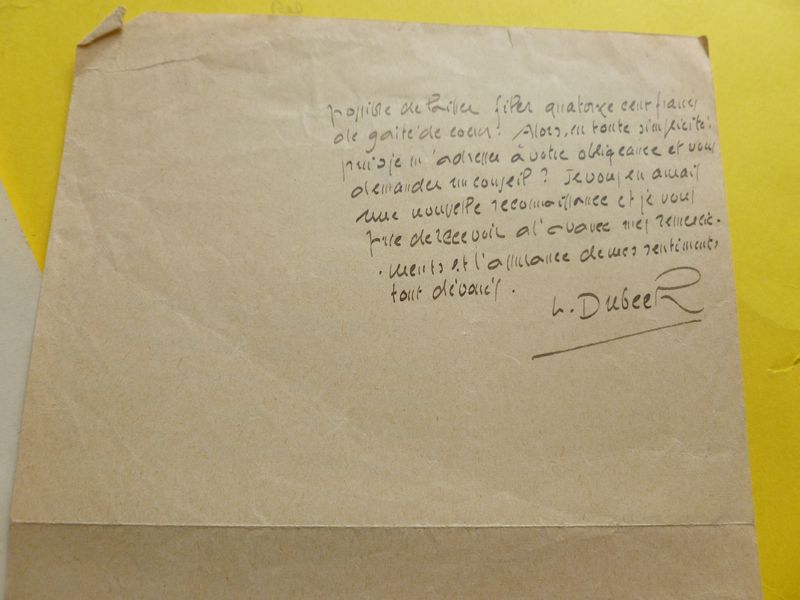 possible de laisser filer quatorze cent francs
de gaité de coeur ! Alors, en toute simplicité,
puis-je m'adresser à votre obligeance et vous
demander un conseil ? Je vous en aurais
une nouvelle reconnaissance et je vous
prie de recevoir à l'avance mes remercie-
-ments et l'assurance de mes sentiments
tout dévoués.
L.